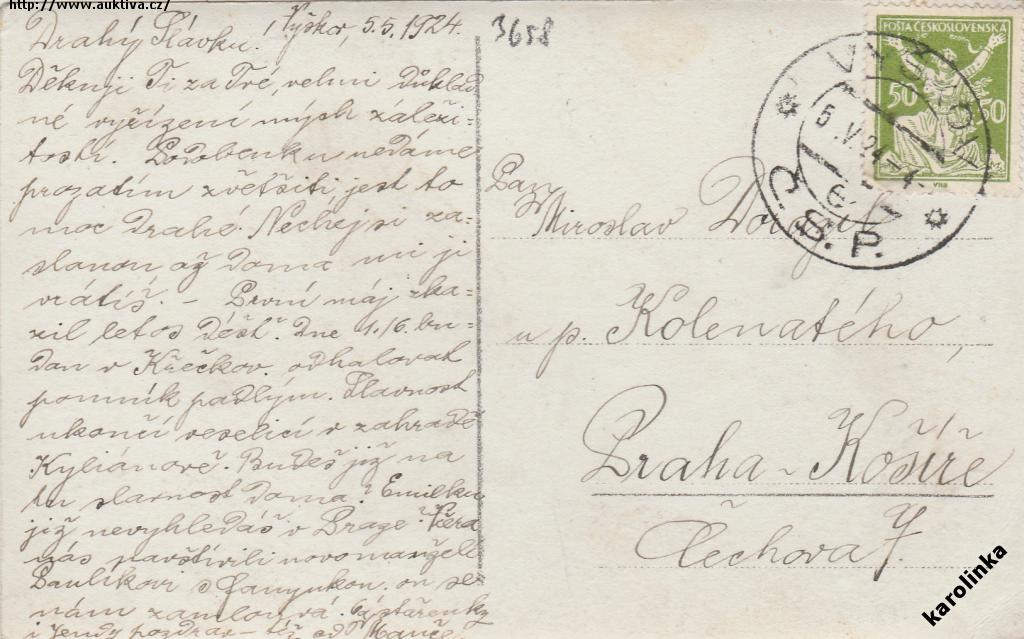 http://www.auktiva.cz/
Vyškov, 5.5.1924.
Drahý Slávku.
Děkuji Ti za Tvé, velmi důklad
né vyřízení mých záleži-
tostí. Podobenku nedáme
prozatím zvětšiti, jest to
moc drahé. Nechej si za-
slanou až doma mi ji
vrátíš. - První máj zka-
zil letos déšť. Dne 1./6. bu-
dou v Křečkov. odhalovat
pomník padlým. Slavnost
ukončí veselicí v zahradě
Kyliánově. Budeš již na
tu slavnost doma? Emilku
již nevyhledáš v Praze? Včera
nás navštívili novomanželé
Paulíkovi s on se
nám zamlouvá. Od stařenky
i Jendy pozdrav - též od
3658
POŠTA ČESKOSLOVENSKÁ
50 50
5.V.24
Č.S.P.
Pan
Miroslav
u p. Kolenatého,
Praha - Košíře
Čechova 7.
karolinka